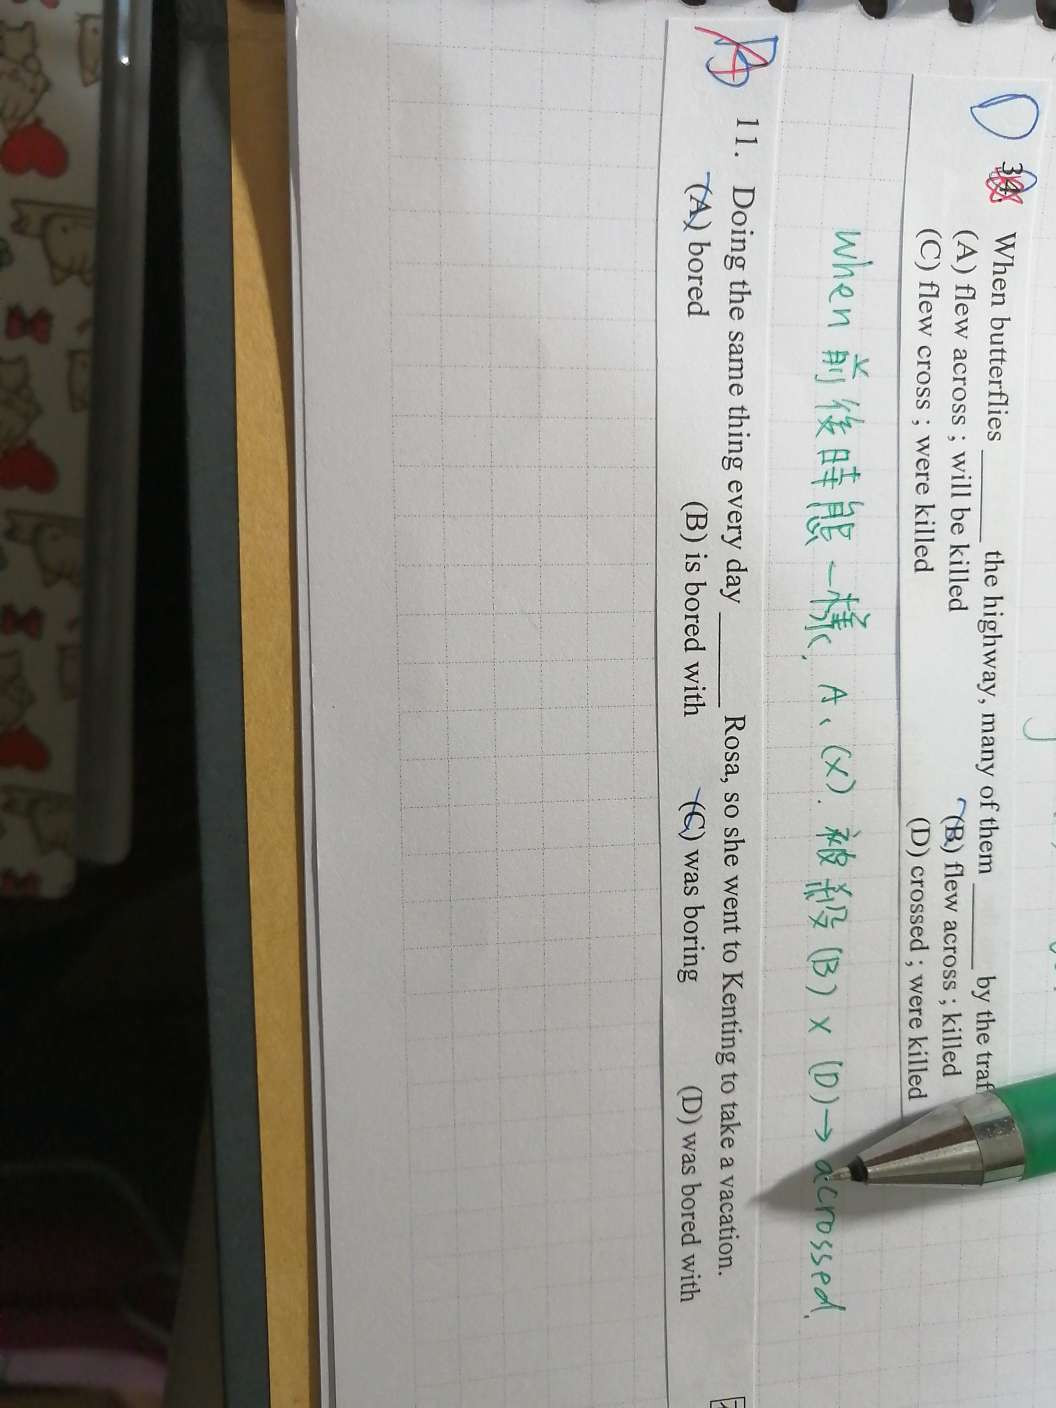 D 34. When butterflies ______ the highway, many of them ______ by the traf
(A) flew across ; will be killed (B) flew across ; killed
(C) flew cross ; were killed (D) crossed ; were killed
when 前後時態一樣, A、(X). 被殺 (B) X (D)→ acrossed.
A 11. Doing the same thing every day ______ Rosa, so she went to Kenting to take a vacation.
(A) bored (B) is bored with (C) was boring (D) was bored with